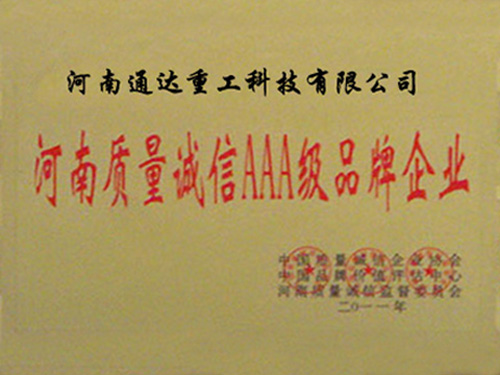 河南通达重工科技有限公司
河南质量诚信AAA级品牌企业
中国质量诚信企业协会
中国品牌价值评估中心
河南质量诚信监督委员会
二〇一一年